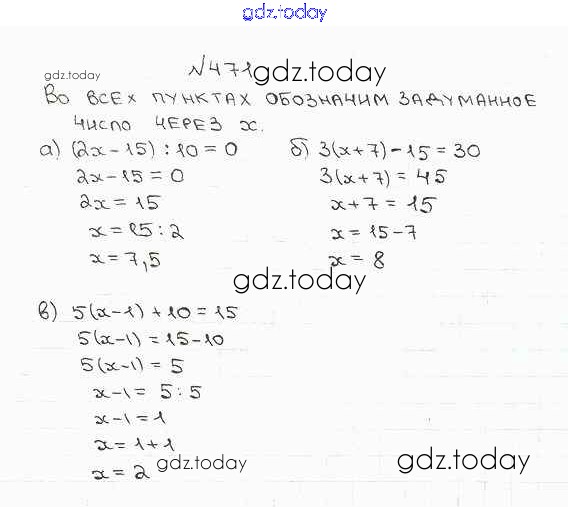 gdz.today
№471 gdz.today
gdz.today
Во всех пунктах обозначим задуманное
число через x.
а) (2x-15):10=0
2x-15=0
2x=15
x=15:2
x=7,5
б) 3(x+7)-15=30
3(x+7)=45
x+7=15
x=15-7
x=8
gdz.today
в) 5(x-1)+10=15
5(x-1)=15-10
5(x-1)=5
x-1=5:5
x-1=1
x=1+1
x=2
gdz.today
gdz.today